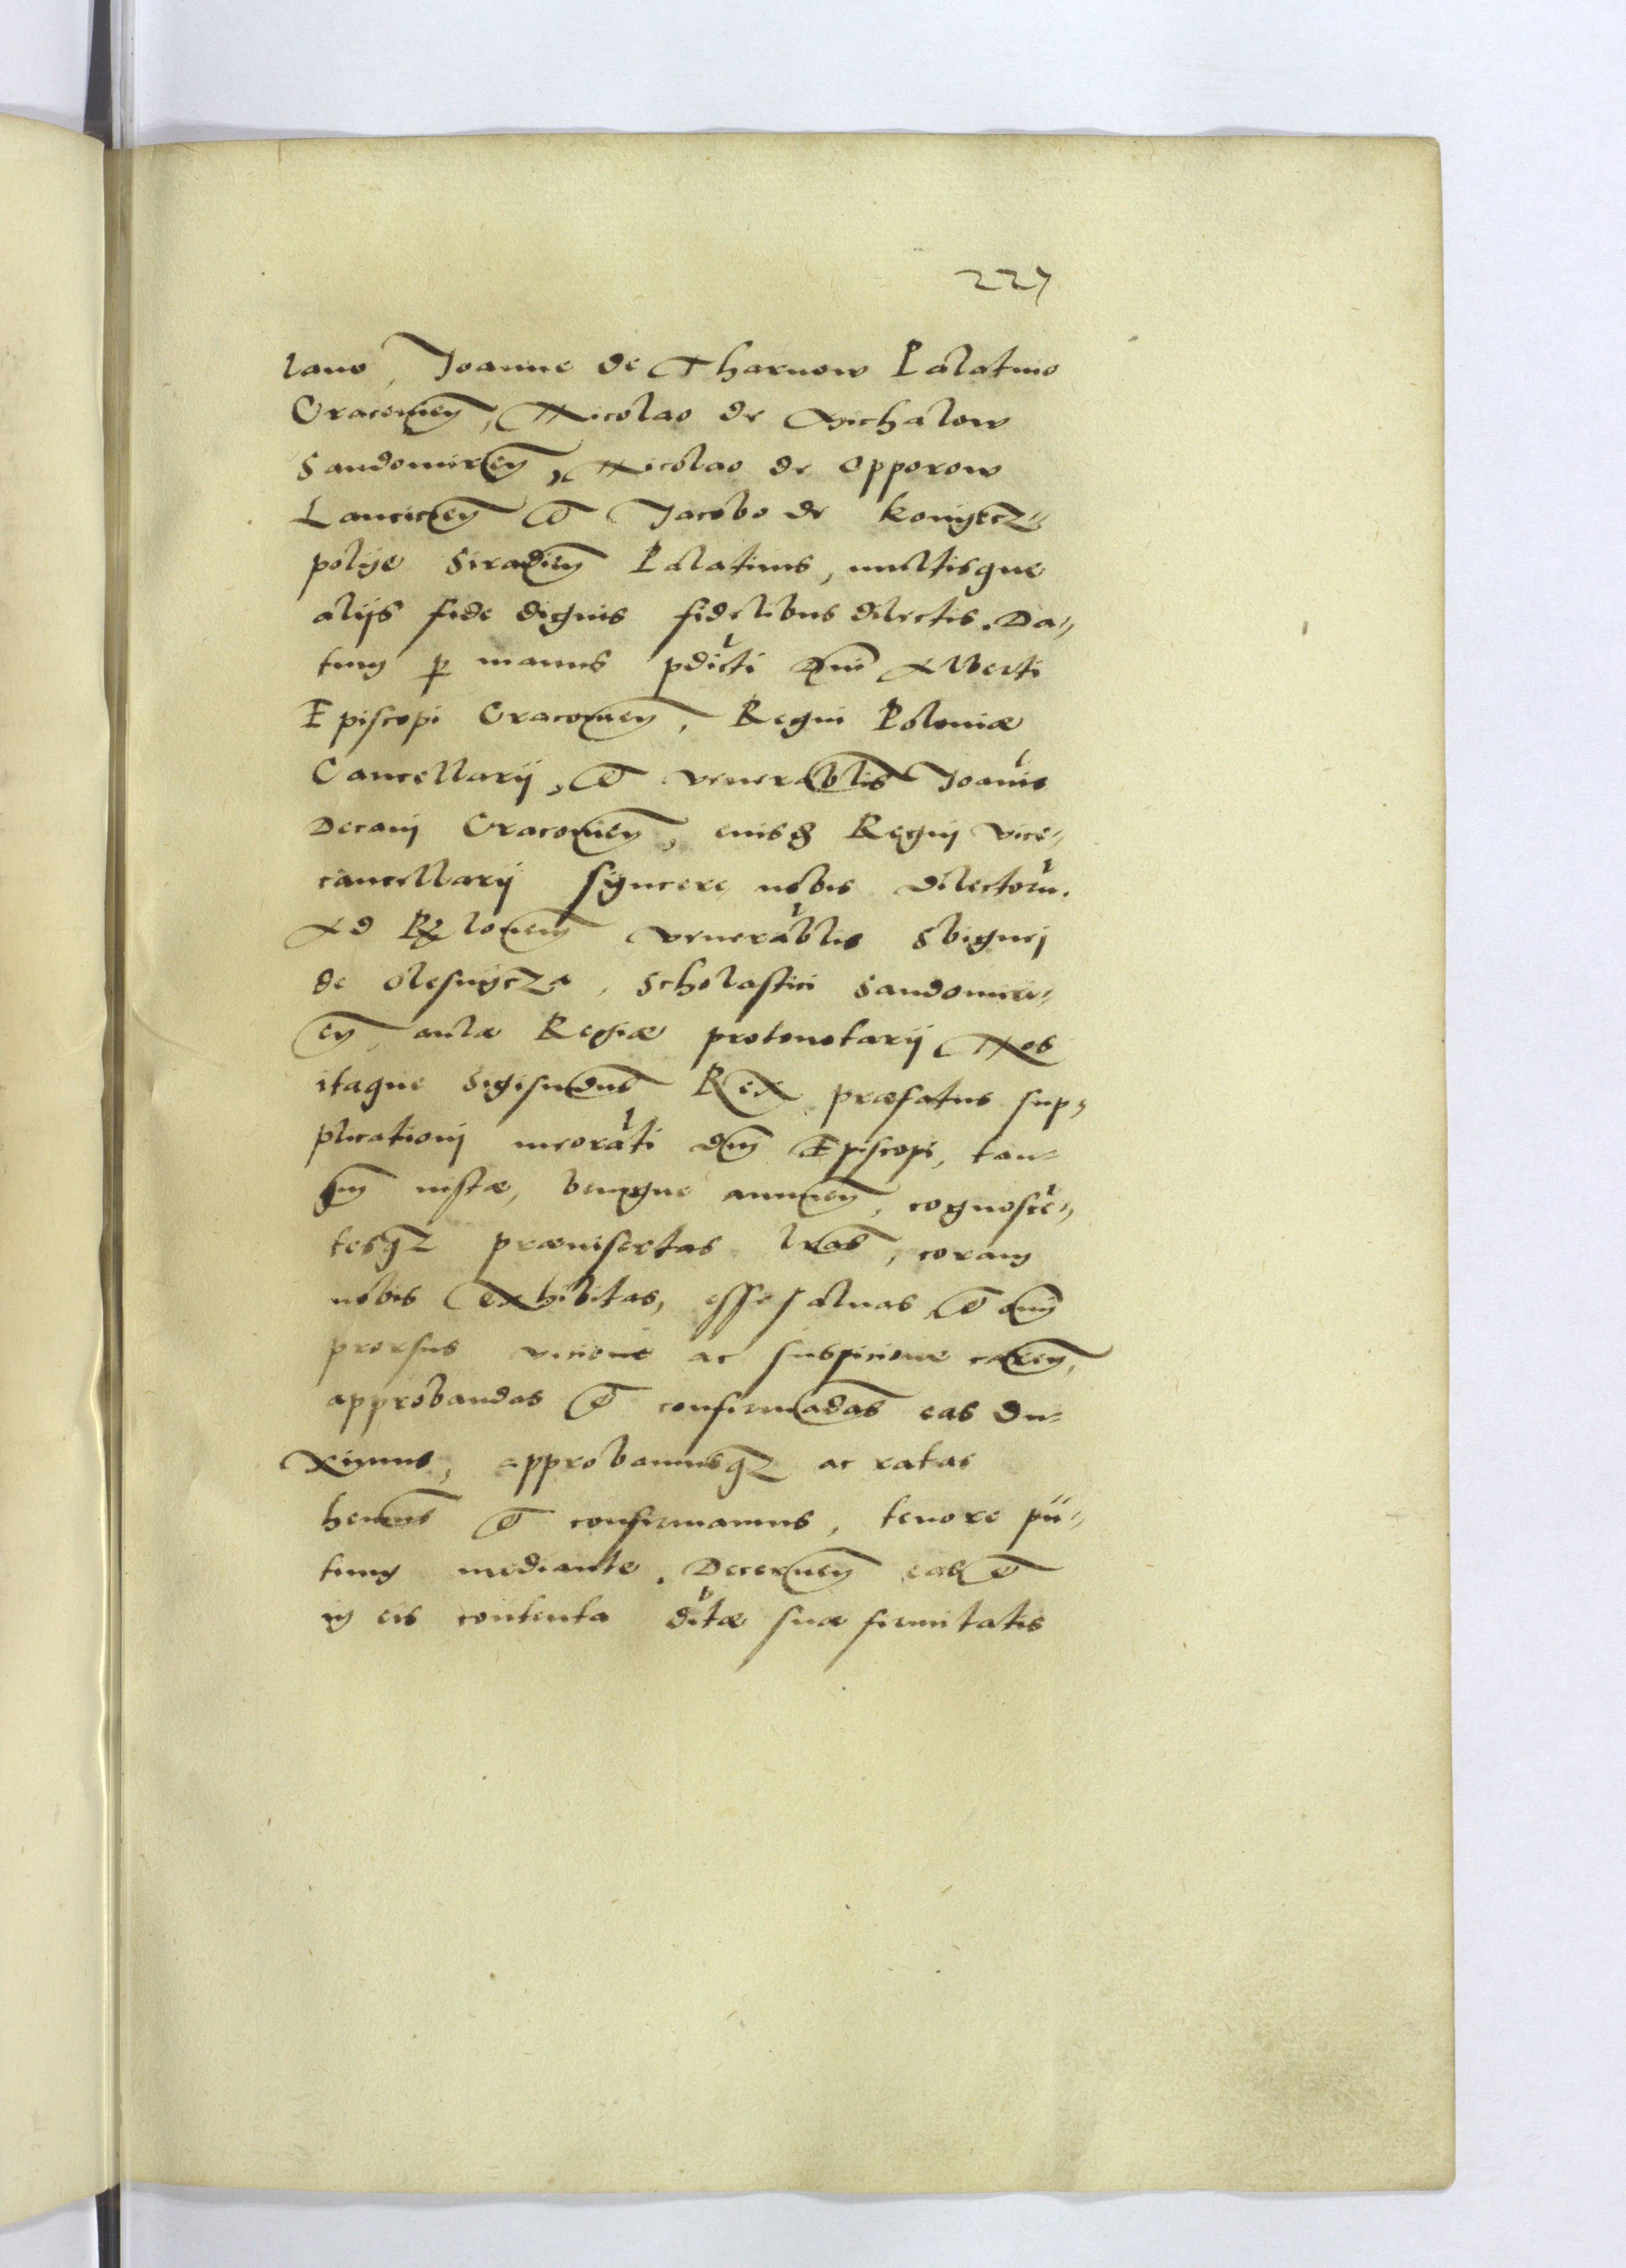 227
lano, Joanne de Tharnow Palatino
Cracowien, Nicolao de Michalow
Sandomirien, Nicolao de Opporow
Lancicien et Jacobo de Konyecz-
polye Siradien Palatinis, multisque
alijs fide dignis fidelibus dilectis. Da-
tum p manus pdicti dni Alberti
Episcopi Cracowien, Regni Poloniæ
Cancellarij, et venerablis Joanis
Decani Cracowien, eiusd Regni vice-
cancellarij syncere nobis dilectoru.
Ad Relonem venerablis Sbignei
de Olesnycza, Scholastici Sandomiri-
en, aulæ Regiæ protonotarij Nos
itaque Sigismudus Rex præfatus sup-
plicationi meorati dni Episcopi, tan-
qm iustæ, benigne annuen, cognosce-
tesqz præinsertas lras, coram
nobis exhibitas, esse saluas et omi
prorsus vicione ac suspicione caren,
approbandas et confirmadas eas du-
ximus, approbamusqz ac ratas
hemus et confirmamus, tenore pñ-
tium mediante. Decernen eas et
in eis contenta debitæ suæ firmitatis